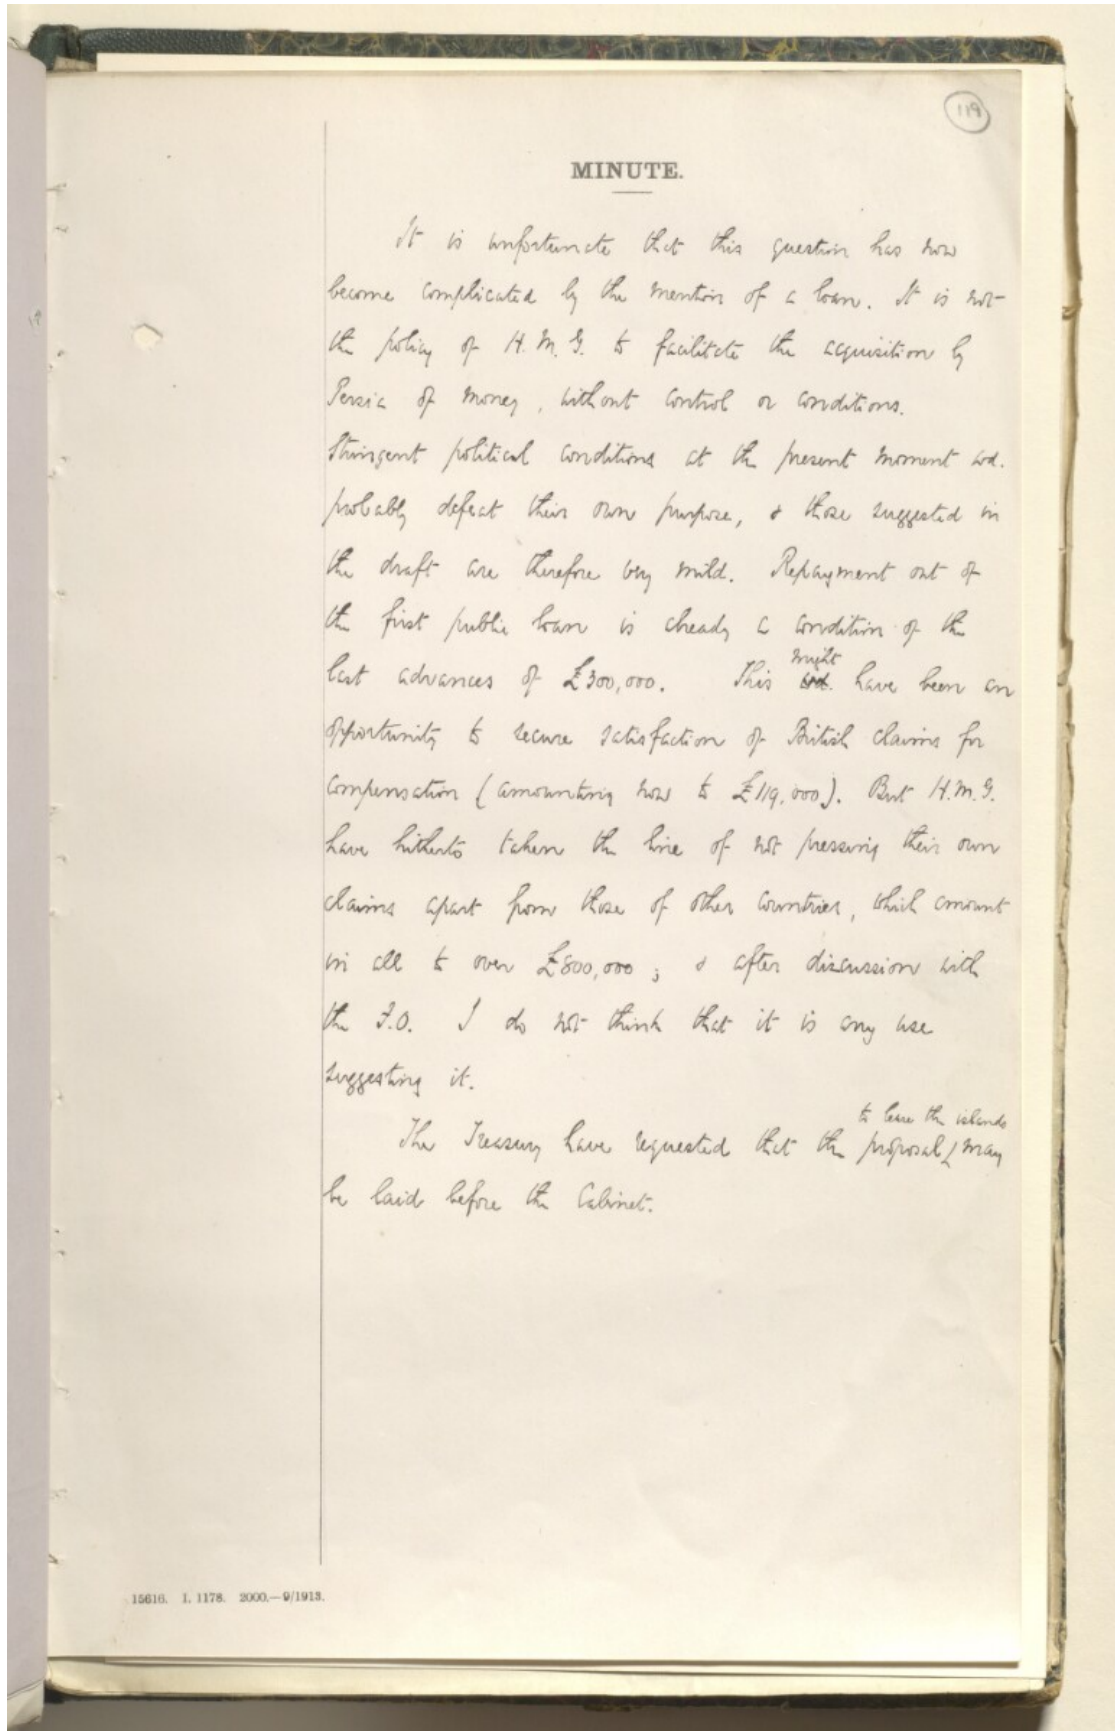 119
MINUTE.
It is unfortunate that this question has now
become complicated by the mention of a loan. It is not
the policy of H.M.G. to facilitate the acquisition by
Persia of money, without control or conditions.
Stringent political conditions at the present moment wd.
probably defeat their own purpose, & those suggested in
the draft are therefore very mild. Repayment out of
the first public loan is already a condition of the
last advances of £300,000. This wd. have been an
might
opportunity to secure satisfaction of British claims for
compensation (amounting now to £119,000). But H.M.G.
have hitherto taken the line of not pressing their own
claims apart from those of other countries, which amount
in all to over £800,000; & after discussion with
the F.O. I do not think that it is any use
suggesting it.
to lease the islands
The Treasury have requested that the proposal may
be laid before the Cabinet.
15616. I. 1178. 2000.—9/1913.